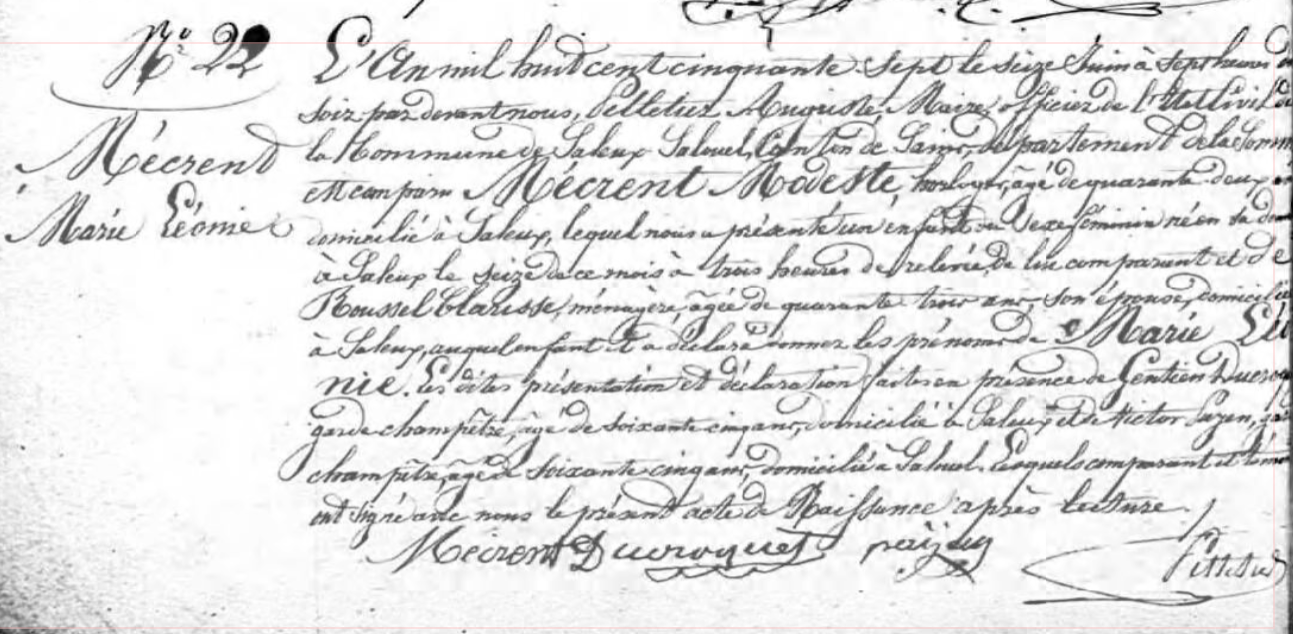 N° 22
Mécrent
Marie Léonie
L'An mil huit cent cinquante sept le seize Juin à sept heures du
soir par devant nous, Pelletier Auguste, Maire, officier de l'Etat Civil de
la Commune de Saleux Salouel, Canton de Sains, département de la Somme
est comparu Mécrent Modeste, horloger, âgé de quarante deux ans
domicilié à Saleux, lequel nous a présenté un enfant du sexe féminin né en sa
à Saleux le seize de ce mois à trois heures de relevée, de lui comparant et de
Roussel Clarisse, ménagère, âgée de quarante trois ans, son épouse, domiciliée
à Saleux, auquel enfant il a déclaré donner les prénoms de Marie Léo
nie. Les dites présentation et déclaration faites en présence de Gentien Ducroq
garde champêtre, âgé de soixante cinq ans, domicilié à Saleux, et de Victor
champêtre, âgé de soixante cinq ans, domicilié à Saluel. Lesquels comparant et témoins
ont signé avec nous le présent acte de Naissance après lecture.
Mécrent Ducroquet